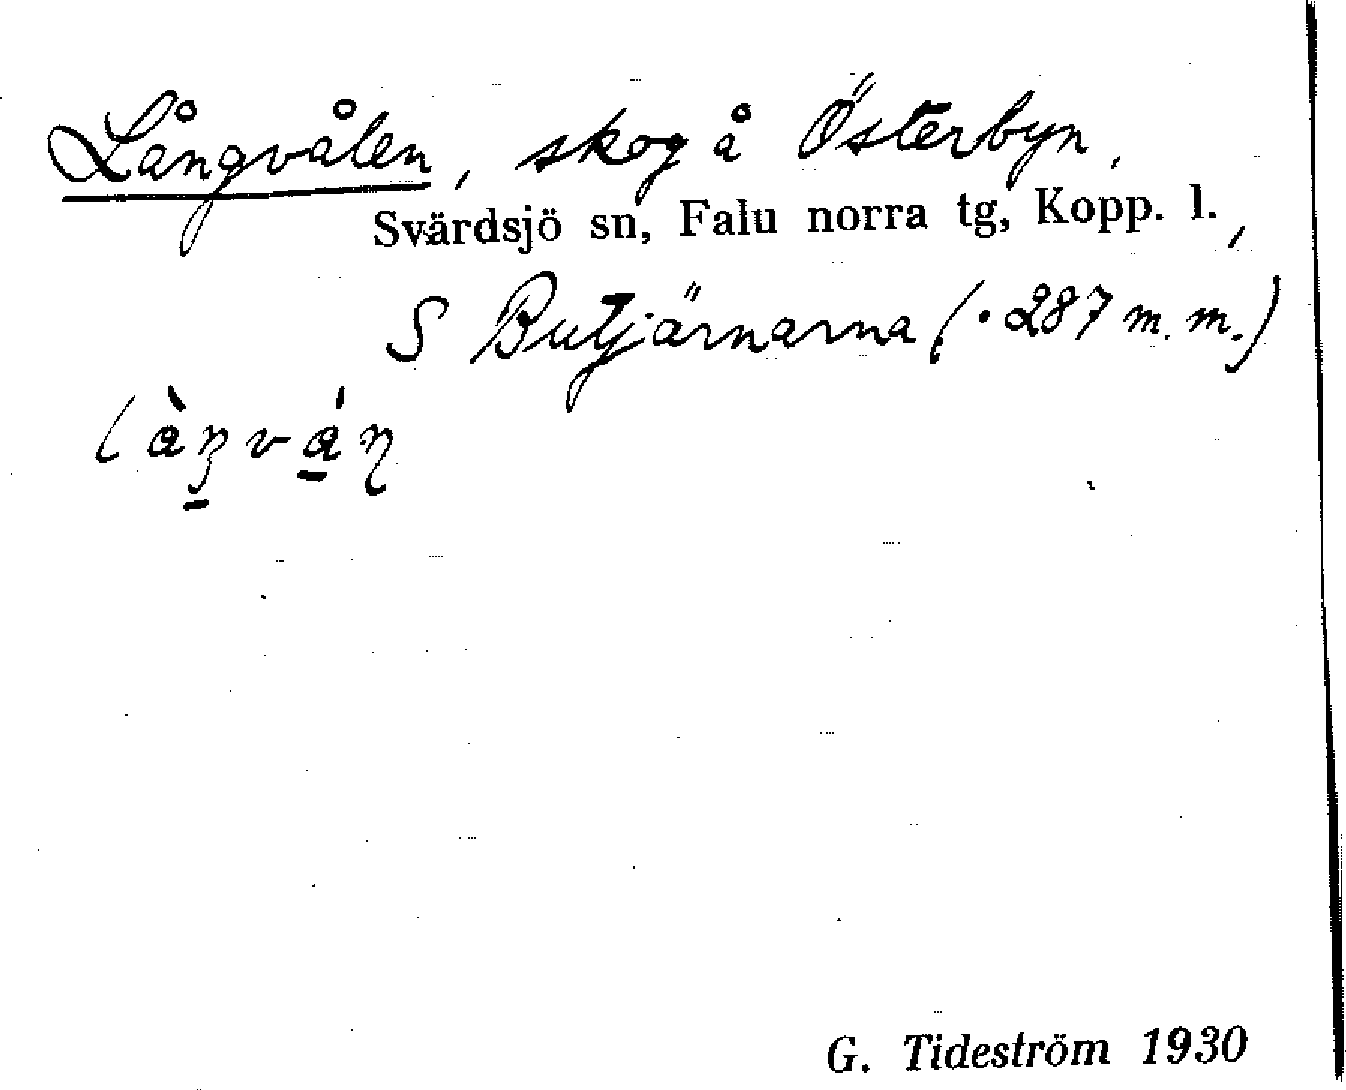 Långvålen, skog å Österbyn,
Svärdsjö sn, Falu norra tg, Kopp. l.,
S Butjärnarna (·287 m. m.)
G. Tideström 1930